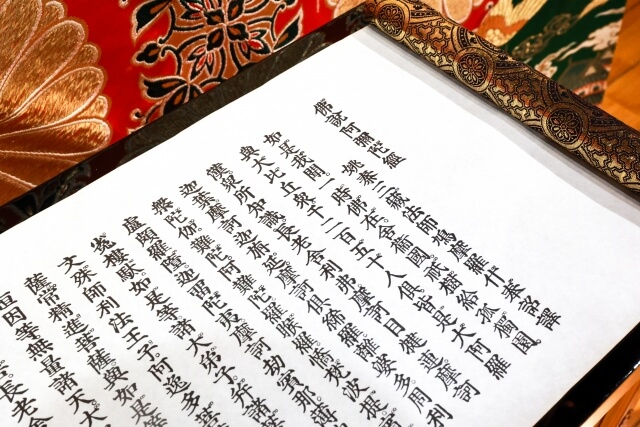 佛說阿彌陀經
姚秦三藏法師鳩摩羅什奉詔譯
如是我聞。一時佛在。舍衞國。祇樹給孤獨園。
與大比丘衆。千二百五十人俱。皆是大阿羅
漢。衆所知識。長老舍利弗。摩訶目犍連。摩訶
迦葉。摩訶迦旃延。摩訶俱絺羅。離婆多。周利
槃陀伽。難陀。阿難陀。羅睺羅。憍梵波提。
盧頗羅墮。迦留陀夷。摩訶劫賓那。薄
㝹樓駄。如是等。諸大弟子。幷諸
文殊師利法王子。阿逸多菩
薩。常精進菩薩。與如是等
桓因等。無量諸天大
長老舍